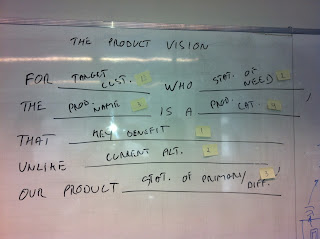 THE PRODUCT VISION
FOR TARGET CUST. WHO STAT. OF NEED 2
THE PROD. NAME 3 IS A PROD. CAT. 4,
THAT KEY BENEFIT 1
UNLIKE CURRENT ALT. 2
OUR PRODUCT STAT. OF PRIMARY DIFF.